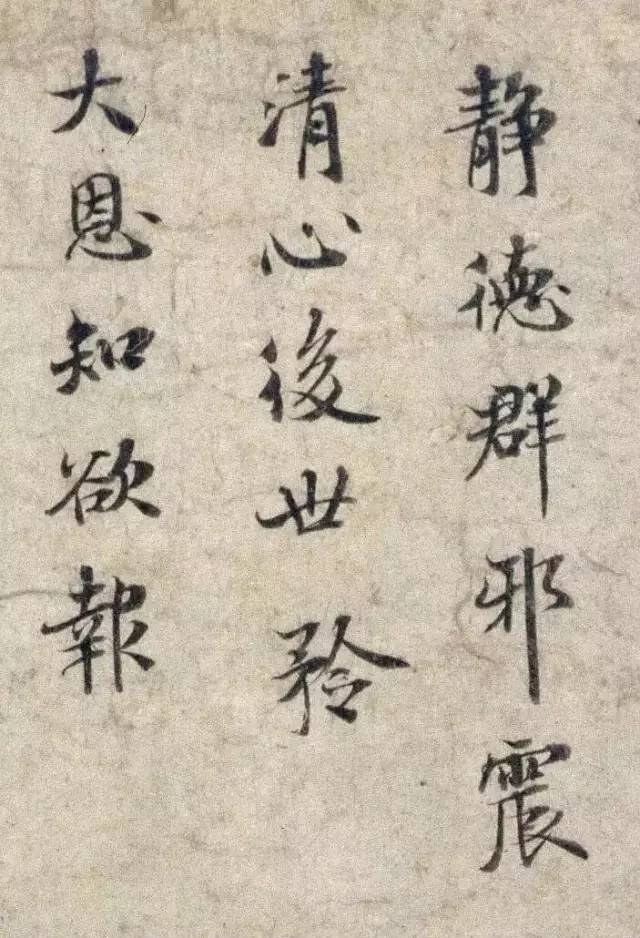 静德群邪震
清心後世矜
大恩知欲報